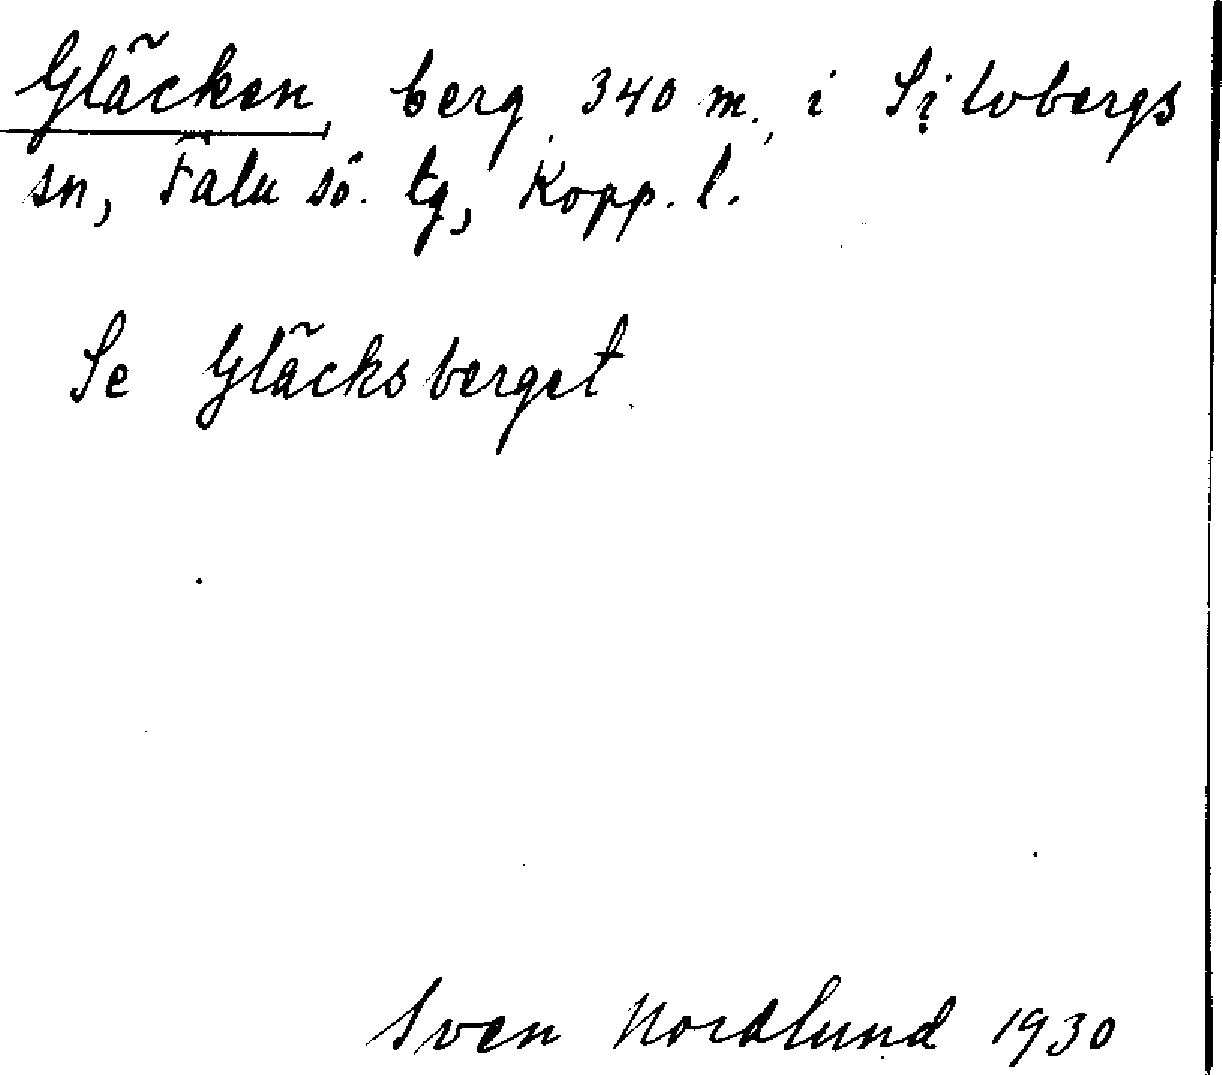 Gläcken, berg 340 m., i Silvbergs
sn, Falu sö. tg, Kopp. l.
Se Gläcksberget.
Sven Nordlund 1930